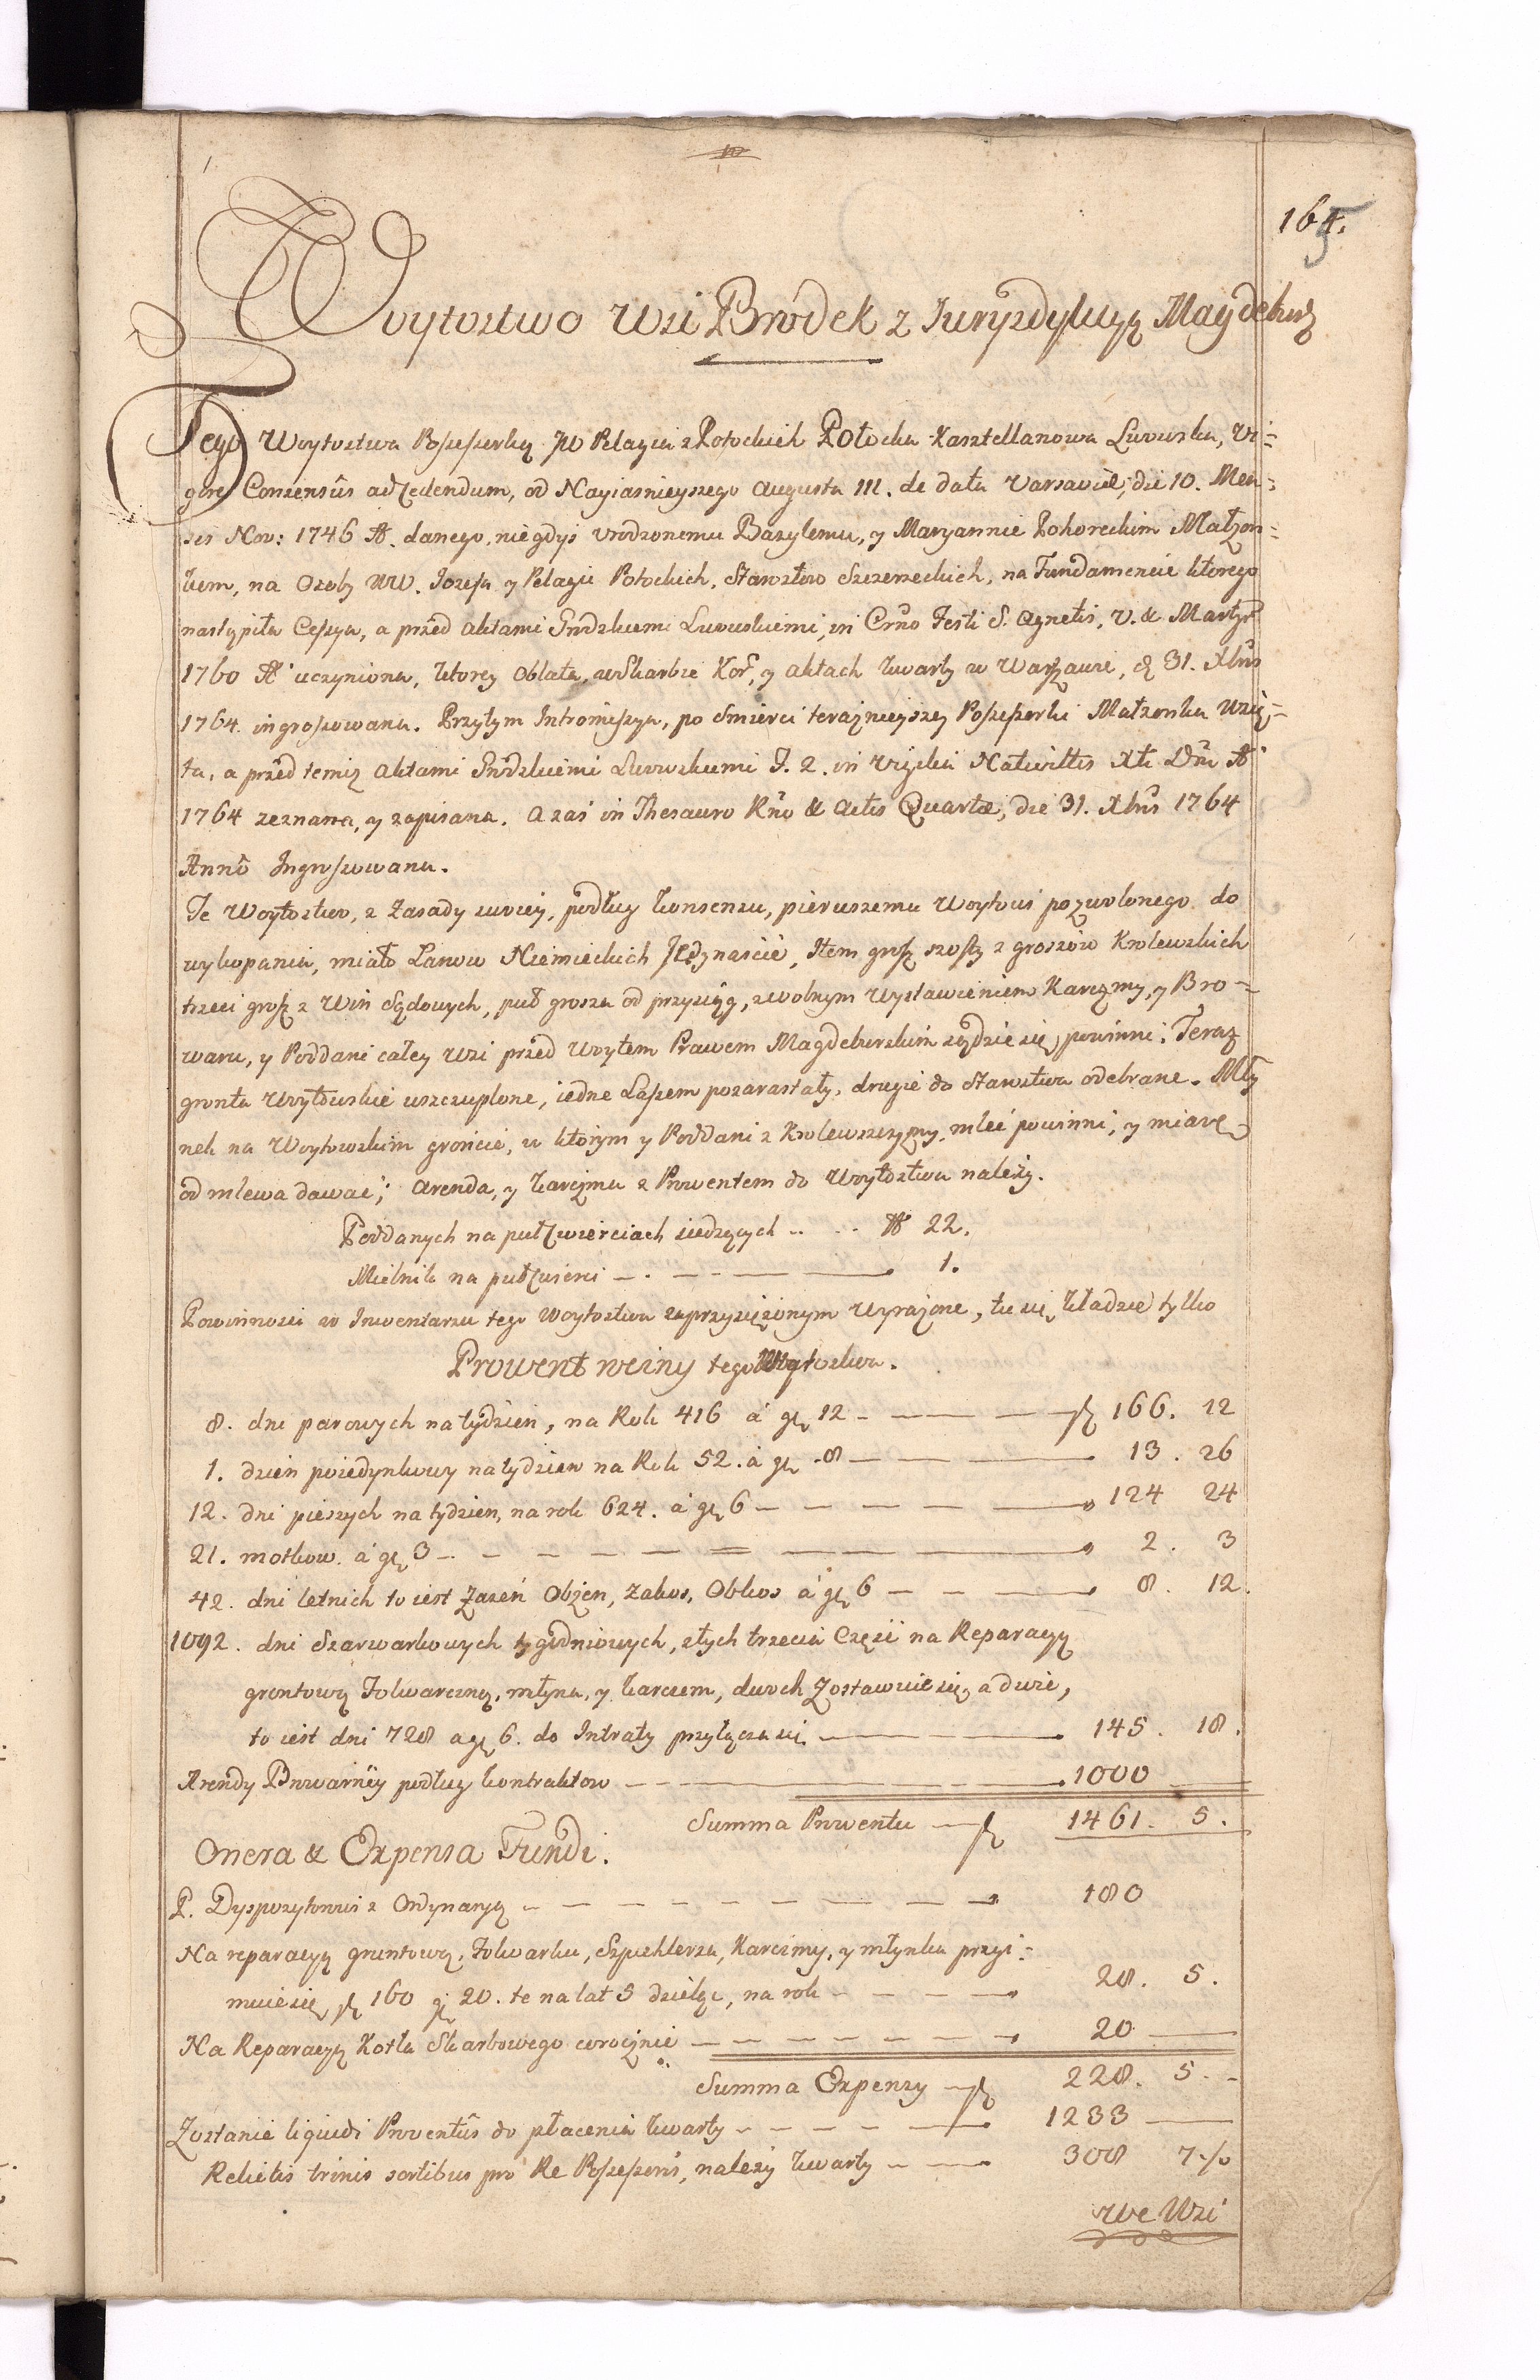 165.
Woytostwo Wsi Brodek z Jurysdykcyą Magdeburs
Tego Woytostwa Possessorką JW Pelagia z Potockich Potocka Kasztellanowa Lwowska, Vi=
gore Consensûs ad Cedendum, od Nayiasnieyszego Augusta III. de data Varsaviæ, die 10. Men=
sis Nov: 1746 A. danego, niegdyś Urodzonemu Bazylemu, y Maryannie Pohoreckim Małżon=
kom, na Osoby WW. Jozefa y Pelagii Potockich, Starostow Szczerzeckich, na Fundamencie ktorego
nastąpiła Cessya, a przed Aktami Grodzkiemi Lwowskiemi, in Crño Festi S. Agnetis, V. & Martyr
1760 A uczyniona, ktorey Oblata, w Skarbie Kor, y Aktach kwarty w Warszawie, d 31. Xbris
1764. ingrossowana. Przytym Intromissya, po smierci teraznieyszey Possessorki Małżonka Wzię=
ta, a przed temiz Aktami Grodzkiemi Lwowskiemi F. 2. in Vigilia Nativittis Xti Dñi A
1764 zeznana, y zapisana. A zaś in Thesauro Rño & Actis Quartæ, die 31. Xbris 1764
Anno Ingrossowana.
Te Woytostwo, z Zasady swoiey, podług konsensu, pierwszemu Woytowi pozwolonego do
wykopania, miało Lanow Niemieckich Jedynaście, Item grosz szosty z groszow Krolewskich
trzeci grosz z Win Sądowych, puł grosza od przysiąg, z wolnym Wystawieniem Karczmy, y Bro=
waru, y Poddani całey Wsi przed Woytem Prawem Magdeburskim sądzić się powinni. Teraz
gronta Woytowskie uszczuplone, iedne Lasem pozarastały, drugie do Starostwa odebrane. Mły
nek na Woytowskim gróncie, w ktorym y Poddani z Krolewszczyzny mleć powinni, y miarę
od mlewa dawać; Arenda, y karczma z Prowentem do Woytostwa należy.
Poddanych na puł Cwierciach siedzących .. .. N 22.
Mielnik na puł Cwierci 1.
Powinnosci w Inwentarzu tego Woytostwa zaprzysiężonym Wyrażone, tu się kładzie tylko
Prowent roczny tego Woytostwa.
8. dni parowych na tydzień, na Rok 416 á gr 12 166. 12
1. dzień poiedynkowy na tydzien na Rok 52. á gr 8 13. 26
12. dni pieszych na tydzien, na rok 624. á gr 6 124 24
21. motkow. á gr 3 2. 3
42. dni letnich to iest Zażeń Obżen, Zakos, Obkos á gr 6 8. 12.
1092. dni Szarwarkowych tygodniowych, z tych trzecia Część na Reparacyą
grontową Folwarczną, młyna, y karczem, dwoch Zostawuie się, a dwie,
to iest dni 728 a gr 6. do Intraty przyłącza się 145. 18.
Arendy Browarney podług kontraktow 1000
Summa Prowentu 1461. 5.
Onera & Expensa Fundi.
P. Dyspozytorowi z Ordynaryą 180
Na reparacyą gruntową, Folwarku, Szpichlerza, Karczmy, y młynka przyi=
muie się 160 gr 20. te na lat 5 dzieląc, na rok 28. 5.
Na Reparacyą Kotła Skarbowego corocznie 20
Summa Expensy 228. 5.
Zostanie liquidi Proventûs do płacenia kwarty 1233
Relictis trinis sortibus pro Re Possessoris, należy kwarty 308 7 ½
we Wsi